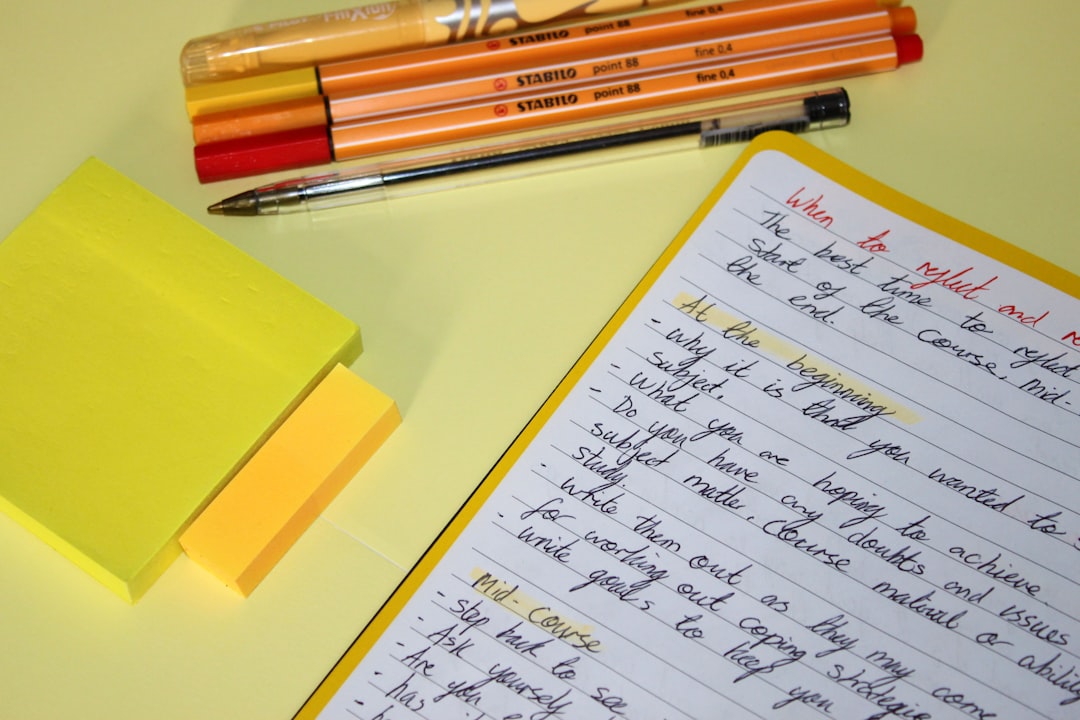 FriXion
STABILO point 88 fine 0,4
STABILO point 88 fine 0,4
STABILO point 88 fine 0,4
When to reflect and
The best time to reflect
start of the course, mid-
the end.
At the beginning
- why it is that you wanted to
subject.
- What you are hoping to achieve.
- Do you have any doubts and issues
subject matter, course material or ability
study.
- write them out as they may come
for working out coping strategies
- write goals to keep you
Mid-Course
- step back to see
- Ask yourself
- Are you
- has